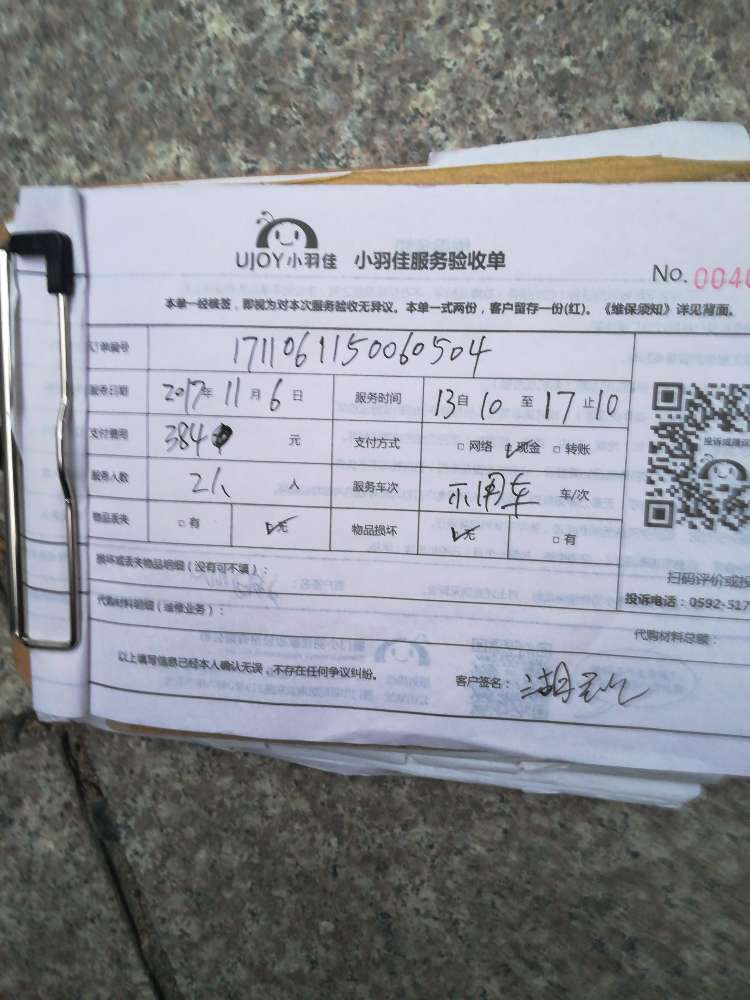 UJOY小羽佳 小羽佳服务验收单
No. 0040
本单一经核签，即视为对本次服务验收无异议。本单一式两份，客户留存一份(红)。《维保须知》详见背面。
订单编号 1711061150060504
服务日期 2017年 11月 6日 服务时间 13自10至17止10
支付费用 384 元 支付方式 □网络 ☑现金 □转账
服务人数 2人 人 服务车次 不用车 车/次
物品丢失 □有 ☑无 物品损坏 ☑无 □有
投诉或建议
损坏或丢失物品明细（没有可不填）：
扫码评价或投
代购材料明细（维修业务）：
投诉电话：0592-517
代购材料总额：
以上填写信息已经本人确认无误，不存在任何争议纠纷。
客户签名：